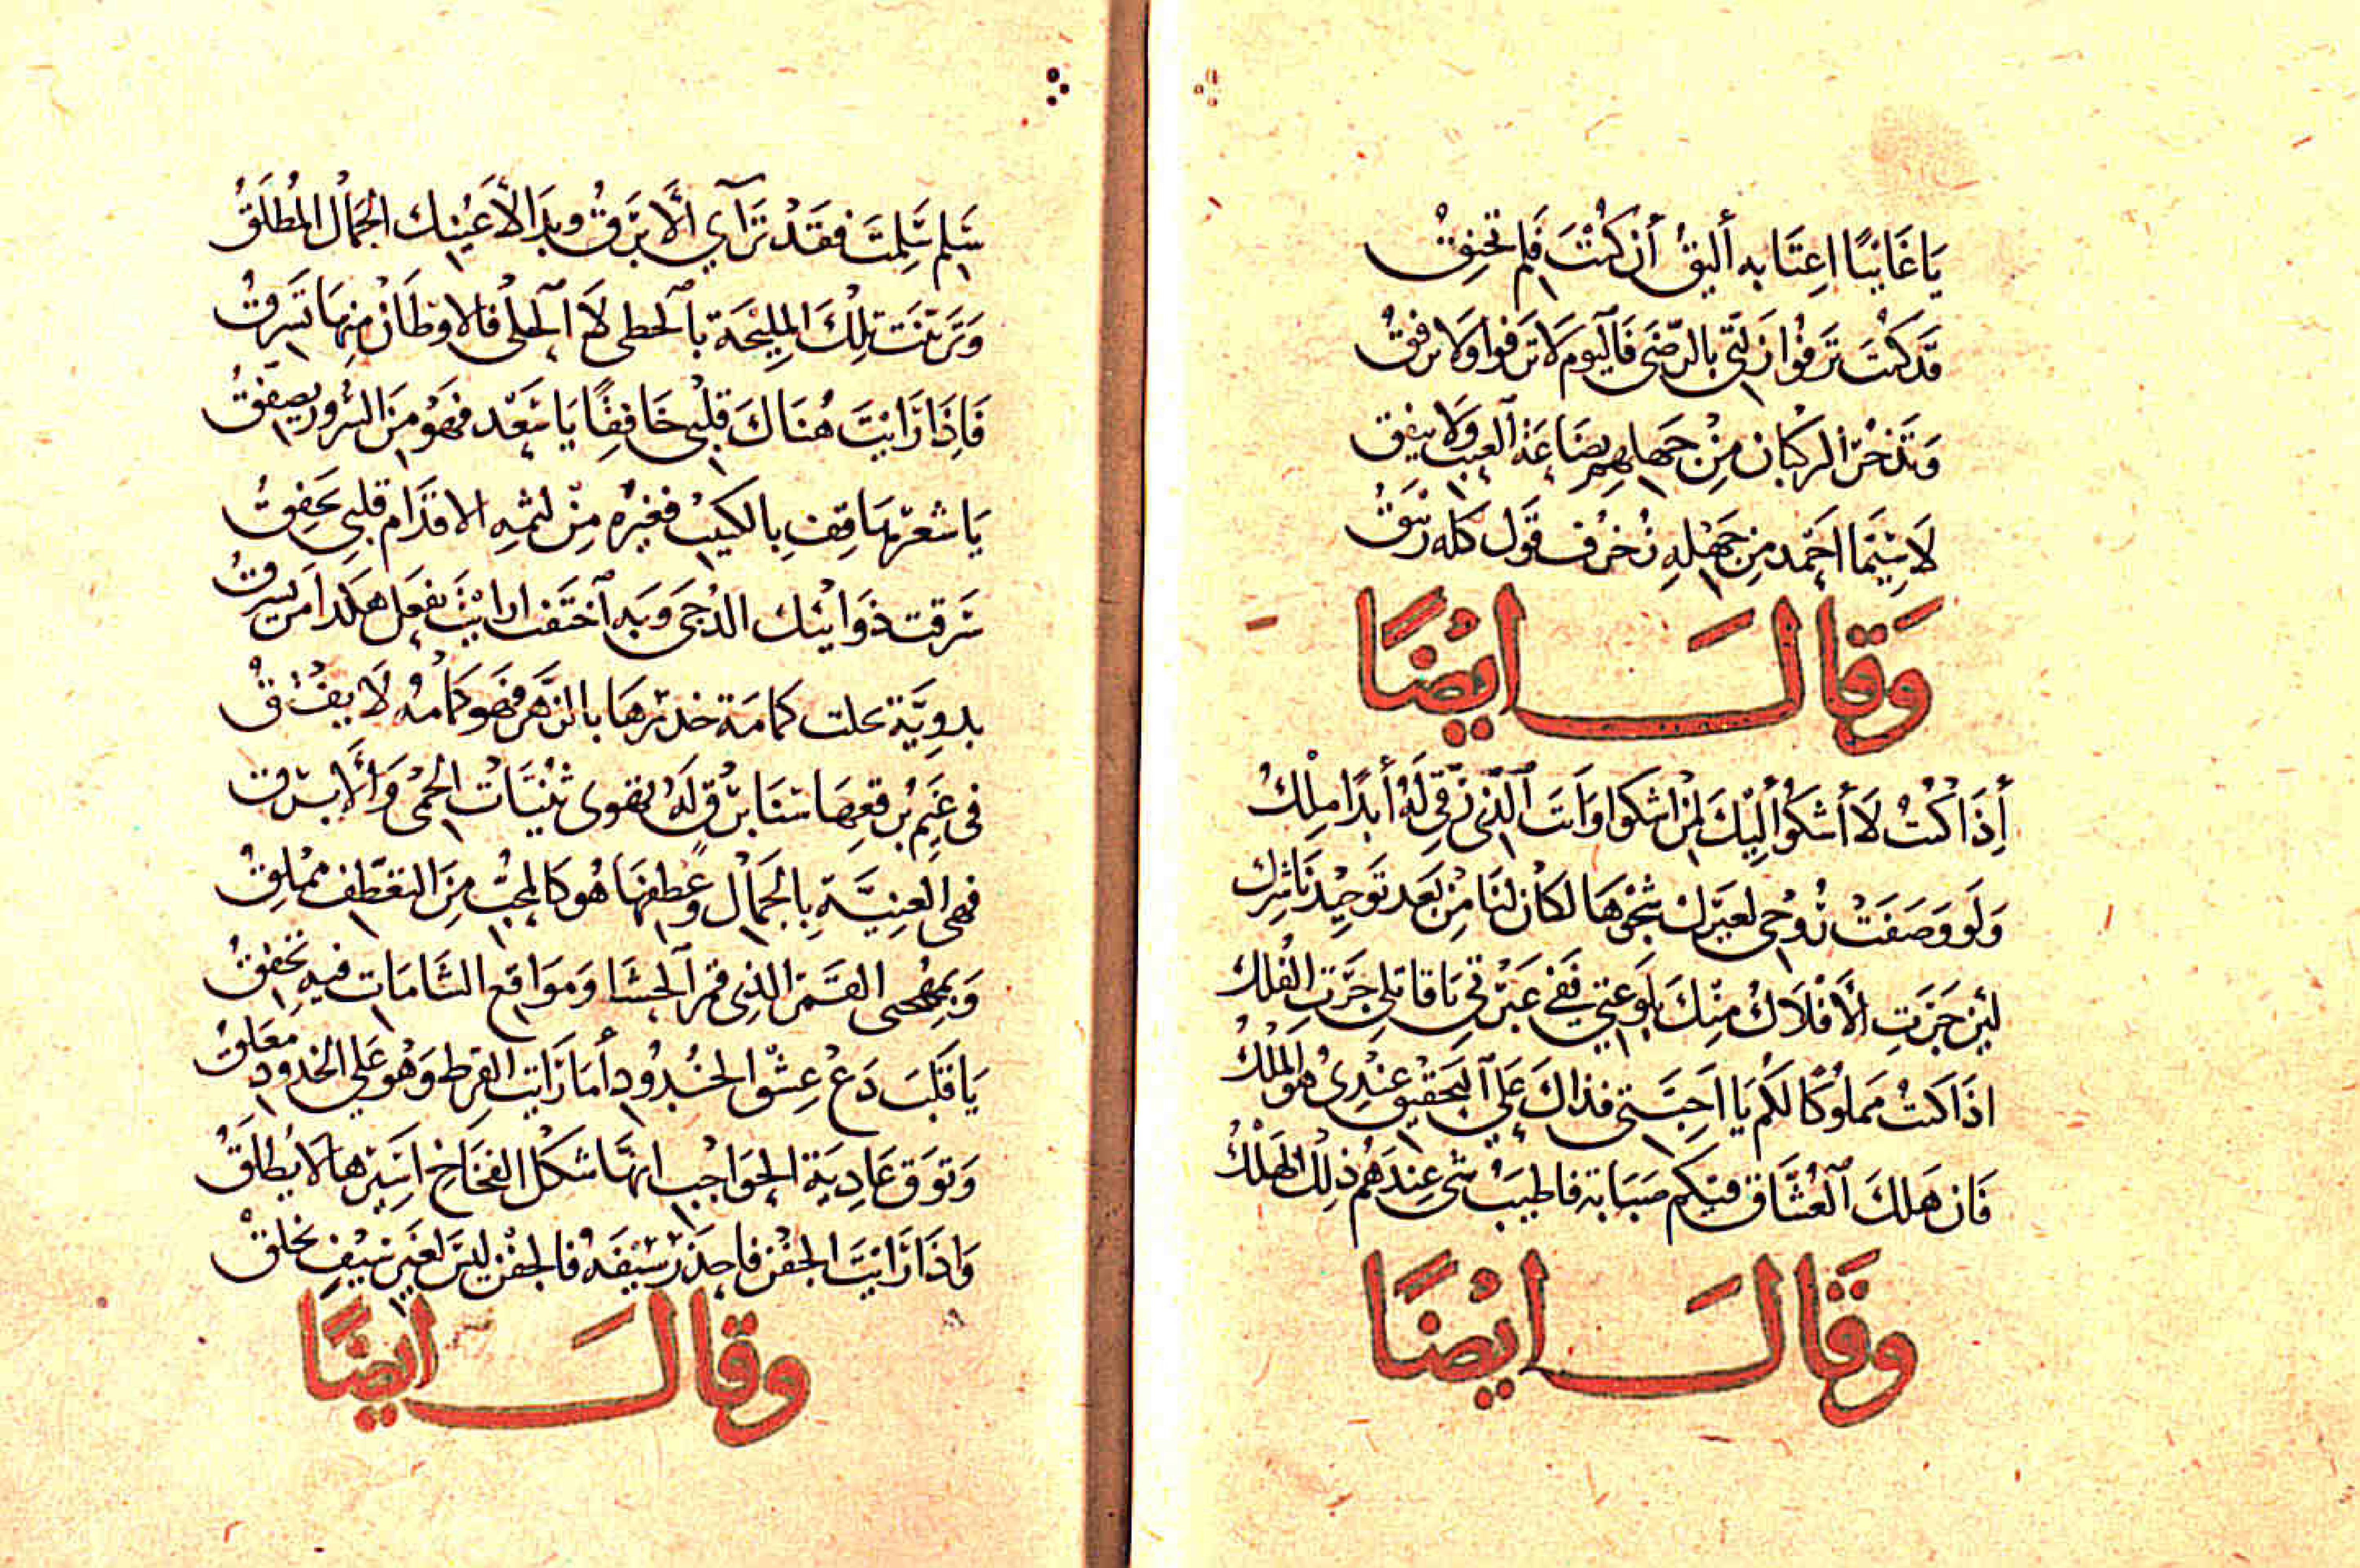 يَا غَائبًا اعِتَابه أليقُ أن كُنْتَ فَلم تحنِقُ
قَد كنْتَ تَرفُوا زلتي بالرّضَى فَاليوم لَا تَرفوا وَلا ترفقُ
وَتدخُر الركبَان مِنْ جهلهم بضَاعَة العيب وَلا ينفِق
لَا سِيَّمَا احَمد من جَهْلهِ زخرف قَول كله زيبَقُ
وَقالَ ايْضًا
أِذَا كنْتُ لَا أشكُوا ألِيْكَ لمنْ اشكوا وَانتَ الّذي رقي لَهُ أبدًا ملِكُ
وَلَو وَصَفَتْ رُوحي لغيَركَ شجْوهَا لكَان لنَا مِنْ بَعَد تَوحِيْدنَا شِركُ
لئِن جَرَتِ الأَفْلاَكُ مِنْكَ بلَوعَتي فَفي عَبْرَتي يَا قَاتلي جَرَتِ الفُلكُ
اذَا كنتُ مَملوُكًا لكُم يَا احَبَّتي فذاكَ عَلي التحقيق عنْدِيْ هُو المْلكُ
فَان هَلكَ العُشَّاق فيْكم صَبَابَة فاطيَبُ شي عِندَهُم ذلِكَ الهَلْكُ
وَقَالَ ايْضًا
سَلم سَلِمتَ فقَدْ تَرَآي الأَبرَقُ وبدَا لأَعيُنِكَ الجَمالُ المُطلَقُ
وَتَزيّنَت تِلْكَ المليْحَة بالحطى لاَ الحلْى فالاوطَانْ مِنهَا تَشرقُ
فَاِذَا رَايْتَ هُنَاكَ قلْبى خَافقًا يَا سَعَد فهَوُ مِنَ السُّرور يصفقُ
يَا شعْرهَا قِفِ بالكثيبْ فغيرُه مِنْ لثمِهِ الاقدَام قلبى يَخفِقُ
سَرقت ذَوَائبكَ الدُجَى وَبه اختَفت ارَايْتَ يفعَل هكَذا مَن يسرقُ
بدوِيَّة علت كمَامَة خدرْهَا بالزَهر فهَو كمَامُهُ لَا يفْتقْ
في غَيم بُرقعهَا سَنَا برْقٍ لَهُ تهوى ثنْيّات الحِمى وَالأَبرَقُ
فهي الغنِيَّةِ بالجَمَال وَعطفهَا هُو كالمحبّ مِنَ التعَّطف مُمْلِقُ
وَبمُهجتى القَمَر الذِى قمَر الحشَا وَموَاقع الشَامَات فيهِ تخفِقُ
يَا قَلبَ دَعْ عِشْق الخُدُودِ أمَا رَايتِ القرط وَهُو عَلي الخدودِ معَلقُ
وَتوَق عَادِيَة الحَوَاجب انهَّا شَكل الفخَاخِ اسَيْرهَا لَا يُطْلَقُ
وَاذَا رَايْتَ الجفْن فاحذَرْ سَيْفَهُ فالجفْن ليسَ لغَير سَيْفٍ يخلقْ
وقالَ ايضًا